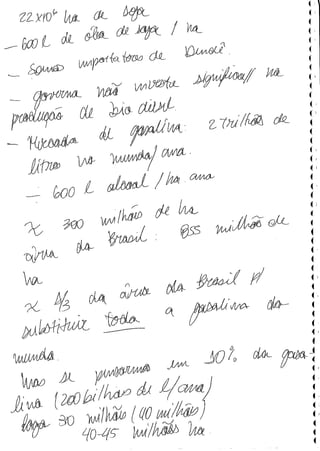 22x10⁶ ha de soja
- 600 l de óleo de soja / ha
- Somos importadores de
- governo não investe significa// na
produção de bio diesel
- Mercado de gasolina: 2 trilhões de
litros no mundo/ano.
- 600 l alcool / ha ano
≈ 300 milhões de ha
área do Brasil: 855 milhão de
ha
≈ 1/3 da área do Brasil p/
substituir toda a gasolina do
mundo.
Mas se pensarmos em 10% da gaso-
lina (200 bilhões de l/ano)
logo 30 milhões (40 milhões)
40-45 milhões ha